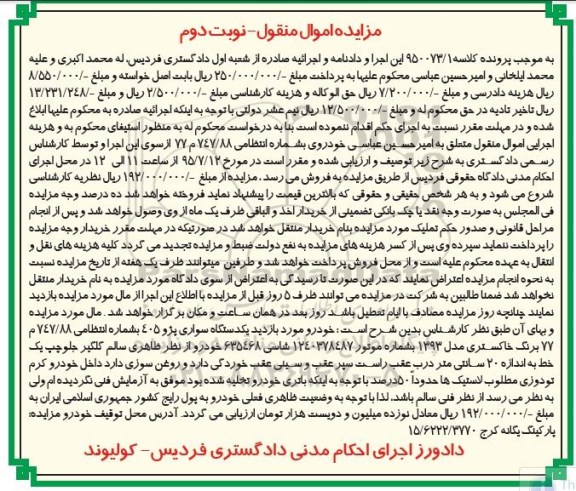 مزایده اموال منقول-نوبت دوم
به موجب پرونده کلاسه ۹۵۰۰۷۳/۱ این اجرا و دادنامه و اجرائیه صادره از شعبه اول دادگستری فردیس، له محمد اکبری و علیه
محمد ایلخانی و امیرحسین عباسی محکوم علیها به پرداخت مبلغ -/۲۵۰/۰۰۰/۰۰۰ ریال بابت اصل خواسته و مبلغ -/۸/۵۵۰/۰۰۰
ریال هزینه دادرسی و مبلغ -/۷/۲۰۰/۰۰۰ ریال حق الوکاله و هزینه کارشناسی مبلغ -/۲/۵۰۰/۰۰۰ ریال و مبلغ -/۱۳/۲۳۱/۲۴۸
ریال تاخیر تادیه در حق محکوم له و مبلغ -/۱۲/۵۰۰/۰۰۰ ریال نیم عشر دولتی با توجه به اینکه اجرائیه صادره به محکوم علیها ابلاغ
شده و در مهلت مقرر نسبت به اجرای حکم اقدام ننموده است بنا به درخواست محکوم له به منظور استیفای محکوم به و هزینه
اجرایی اموال منقول متعلق به امیرحسین عباسی خودروی بشماره انتظامی ۷۴۷/۸۸ م ۷۷ ازسوی این اجرا و توسط کارشناس
رسمی دادگستری به شرح زیر توصیف و ارزیابی شده و مقرر است در مورخ ۹۵/۷/۱۲ از ساعت ۱۱ الی ۱۲ در محل اجرای
احکام مدنی دادگاه حقوقی فردیس از طریق مزایده به فروش می رسد. مزایده از مبلغ -/۱۹۲/۰۰۰/۰۰۰ ریال نظریه کارشناسی
شروع می شود و به هر شخص حقیقی و حقوقی که بالاترین قیمت را پیشنهاد نماید فروخته خواهد شد ده درصد وجه مزایده
فی المجلس به صورت وجه نقد یا چک بانکی تضمینی از خریدار اخذ و الباقی ظرف یک ماه از وی وصول خواهد شد و پس از انجام
مراحل قانونی و صدور حکم تملیک مورد مزایده بنام خریدار منتقل خواهد شد در صورتیکه در مهلت مقرر خریدار وجه مزایده
را پرداخت ننماید سپرده وی پس از کسر هزینه های مزایده به نفع دولت ضبط و مزایده تجدید می گردد کلیه هزینه های نقل و
انتقال به عهده محکوم علیه است و از محل فروش پرداخت خواهد شد و طرفین میتوانند ظرف یک هفته از تاریخ مزایده نسبت
به نحوه انجام مزایده اعتراض نمایند که در این صورت تا رسیدگی به اعتراض از سوی دادگاه مورد مزایده به نام خریدار منتقل
نخواهد شد ضمنا طالبین به شرکت در مزایده می توانند ظرف ۵ روز قبل از مزایده با اطلاع این اجرا از مال مورد مزایده بازدید
نمایند چنانچه روز مزایده مصادف با ایام تعطیل باشد روز بعد در همان ساعت و مکان برگزار خواهد شد. مال مورد مزایده
و بهای آن طبق نظر کارشناس بدین شرح است: خودرو مورد بازدید یکدستگاه سواری پژو ۴۰۵ بشماره انتظامی ۷۴۷/۸۸ م
۷۷ برنگ خاکستری مدل ۱۳۹۳ بشماره موتور ۱۲۴۰۳۷۸۴۸۷ شاسی ۶۳۵۴۶۸ خودرو از نظر ظاهری سالم گلگیر جلو چپ یک
خط به اندازه ۲۰ سانتی متر درب عقب راست سپر عقب وسینی عقب خوردگی دارد و روغن سوزی دارد داخل خودرو کرم
تودوزی مطلوب لاستیک ها حدوداً ۵۰ درصد با توجه به اینکه باتری خودرو تخلیه شده بود موفق به آزمایش فنی نگردیده ام ولی
به نظر می رسد از نظر فنی سالم باشد. لذا با توجه به وضعیت ظاهری فعلی خودرو به پول رایج کشور جمهوری اسلامی ایران به
مبلغ -/۱۹۲/۰۰۰/۰۰۰ ریال معادل نوزده میلیون و دویست هزار تومان ارزیابی می گردد. آدرس محل توقیف خودرو مزایده:
پارکینگ یگانه کرج ۱۵/۶۲۲۲/۳۷۷۰
دادورز اجرای احکام مدنی دادگستری فردیس- کولیوند